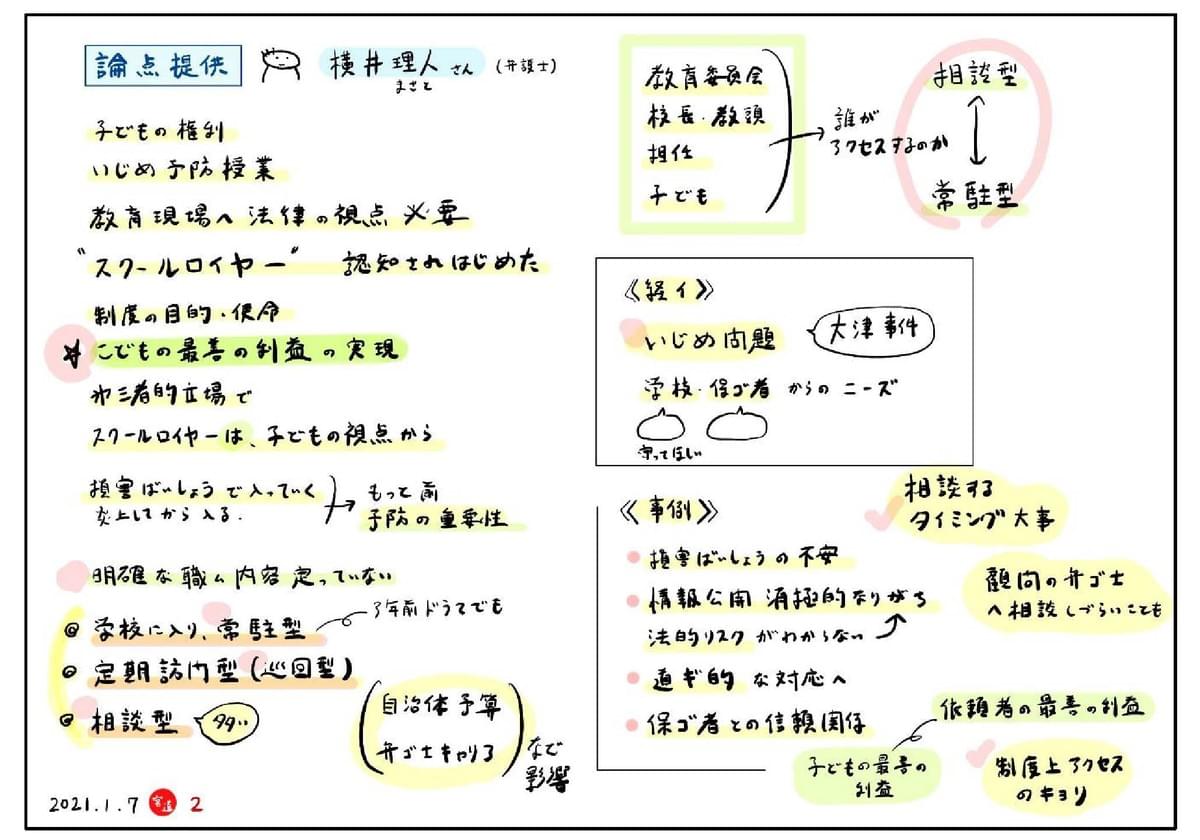 論点提供
横井理人さん (弁護士)
まさと
子どもの権利
いじめ予防授業
教育現場へ法律の視点必要
"スクールロイヤー" 認知されはじめた
制度の目的・使命
こどもの最善の利益の実現
第三者的立場で
スクールロイヤーは、子どもの視点から
損害ばいしょうで入っていく
炎上してから入る.
もっと前
予防の重要性
明確な職ム内容定っていない
学校に入り、常駐型
3年前ドラマでも
定期訪問型(巡回型)
相談型
多い
(自治体予算
弁ゴ士キャリア)
など
影響
2021.1.7
2
教育委員会
校長・教頭
担任
子ども
誰が
アクセスするのか
相談型
常駐型
《経イ》
いじめ問題
大津事件
学校・保ゴ者からのニーズ
守ってほしい
《事例》
相談する
タイミング大事
損害ばいしょうの不安
情報公開 消極的なりがち
法的リスクがわからない
顧問の弁ゴ士
へ相談しづらいことも
道ギ的な対応へ
保ゴ者との信頼関係
依頼者の最善の利益
子どもの最善の
利益
制度上アクセス
のキョリ